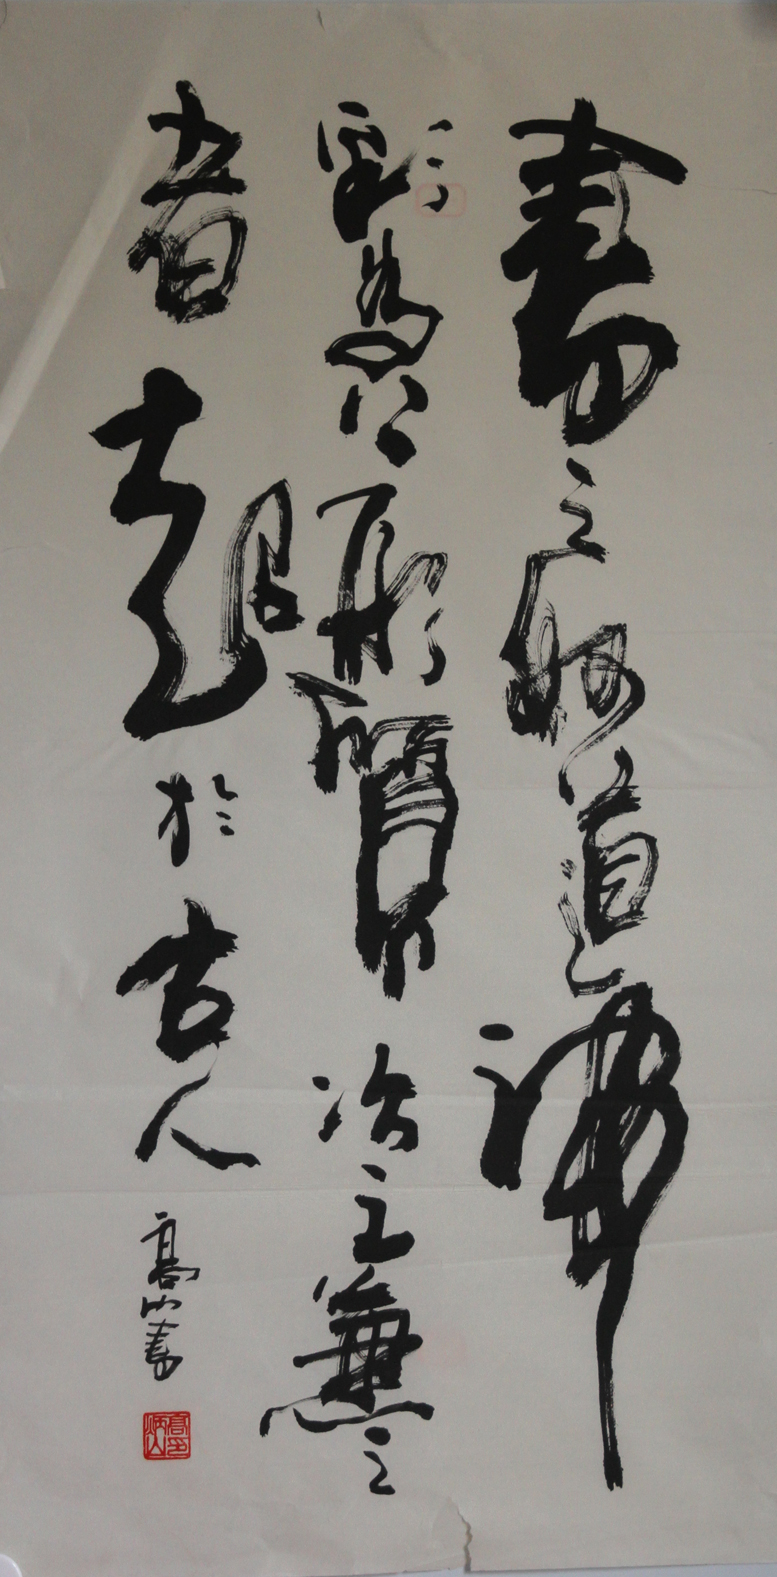 書之妙道神
彩為上形質次之兼之
者超於古人
高山書